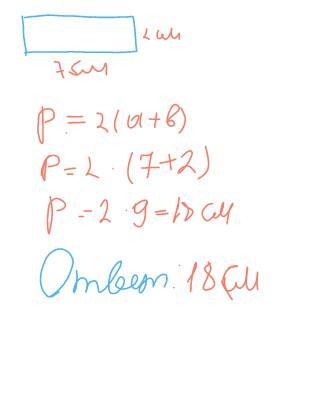 2 см
7 см
P = 2(a+b)
P = 2 · (7+2)
P = 2 · 9 = 18 см
Ответ: 18 см